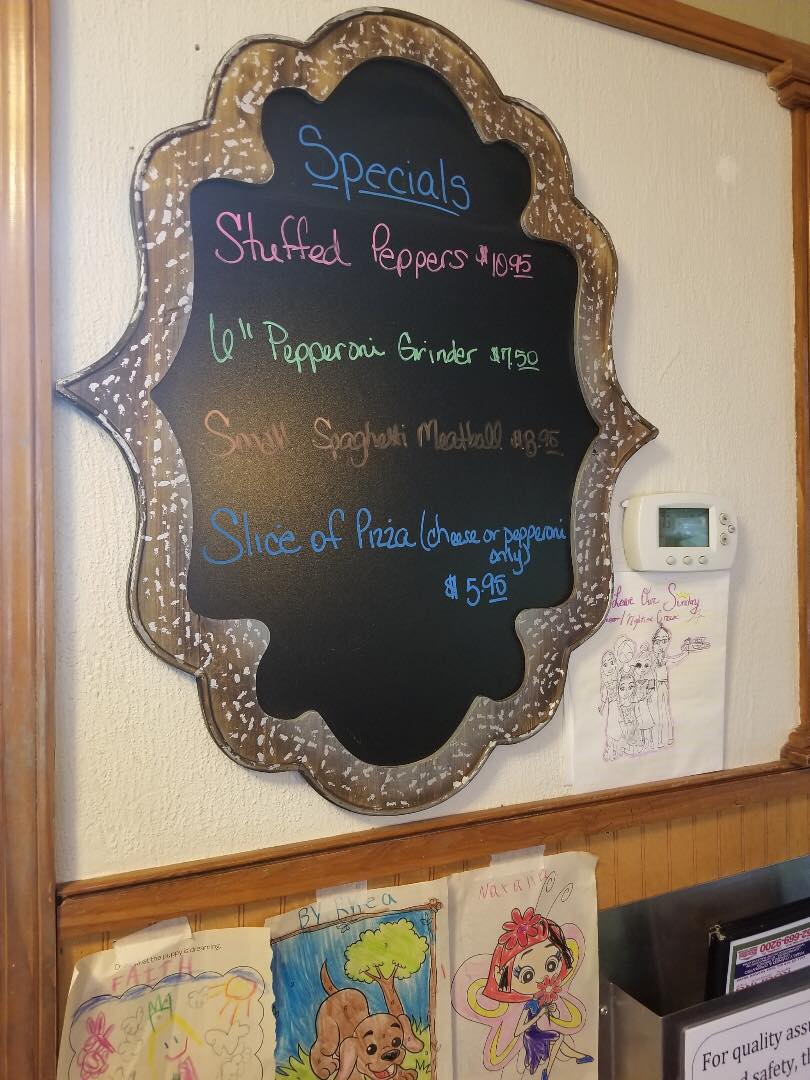 Specials
Stuffed Peppers $10.95
6" Pepperoni Grinder $7.50
Small Spaghetti Meatball $8.95
Slice of Pizza (cheese or pepperoni
only)
$5.95
Love Our Sunday
what the puppy is dreaming.
FAITH
BY Rhea
For quality assu
d safety, th